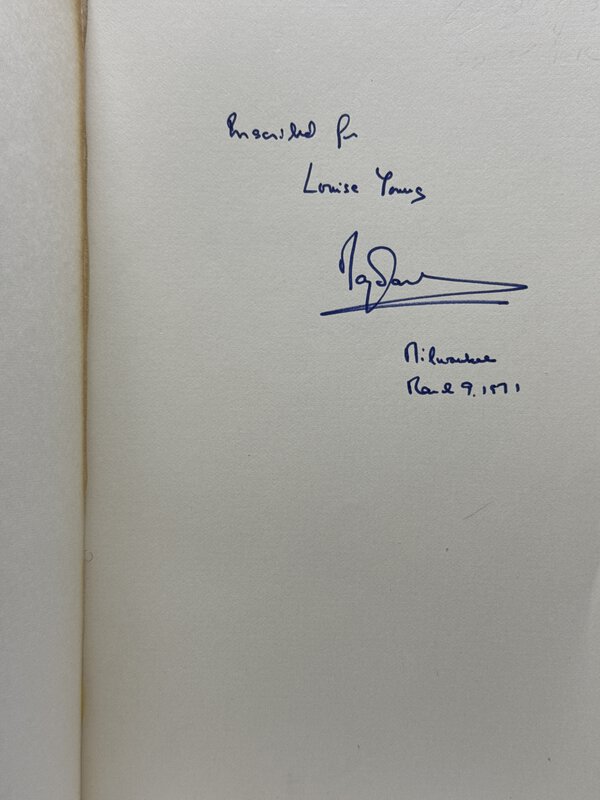 Inscribed for
Louise Young
Milwaukee
March 9, 1971